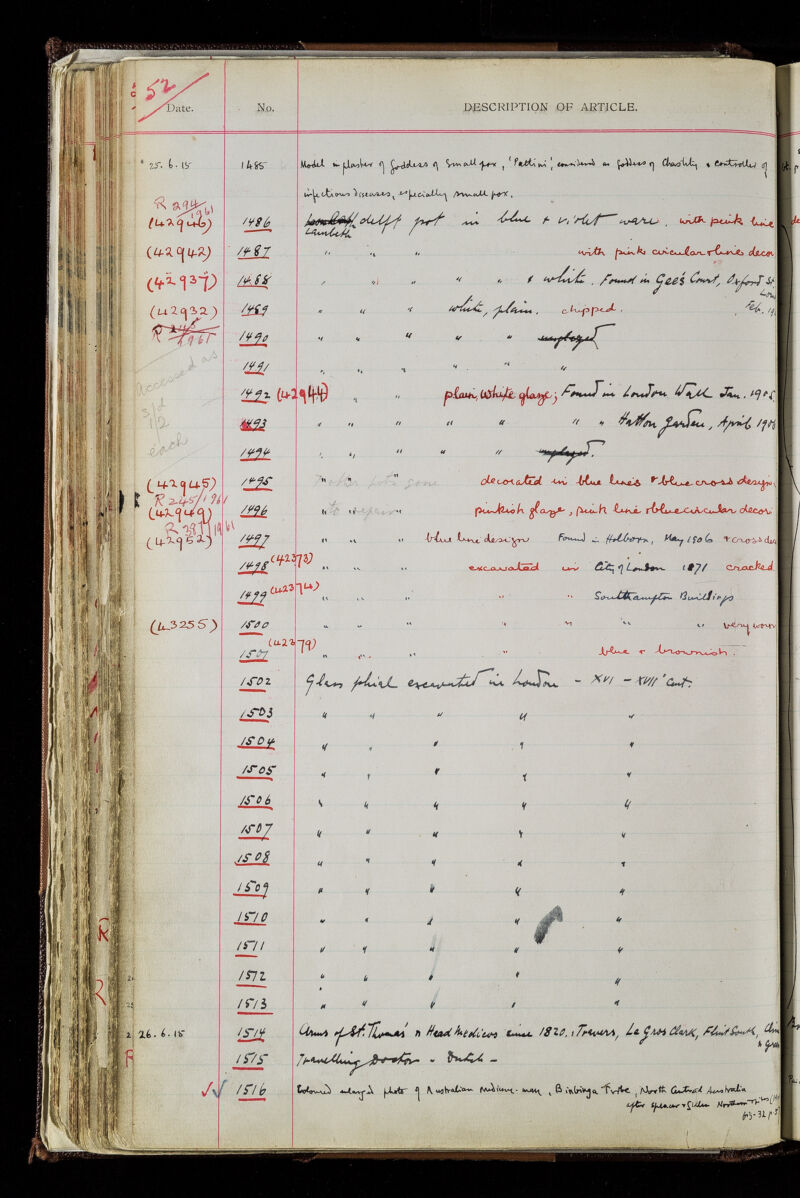 52
Date. No. DESCRIPTION OF ARTICLE.
25. 6. 15 1485 Model in plaster of Goddess of Small pox, 'Pattini', considered as Goddess of Chastity & controller of
infectious diseases, especially small pox.
R 294/1961
(42946) 1486 Lambeth delft pot in blue & violet ware. with pink line
(42942) 1487 " " " with pink circular & lines decor
(42937) 1488 " " " " " & white. Found in Gee's Court, Oxford St.
(42932) 1489 " " " white, plain. chipped. Feb. 19
R 245/1961 1490 " " " " "
1491 " " " " " "
1492 (42944) " " plain, White glaze; Found in London Wall Jan. 1905
1493 " " " " " " " Hatton Garden, April 1906
1494 " " " " "
Accessed as
3/d
1/2
each
(42945) 1495 " " " decorated in blue lines & blue cross design,
R 245/1961
(42949) 1496 " " " pinkish glaze, pink line & blue circular decor
(42952) 1497 " " " blue line design Found in Holborn, May 1906 & cross des
1498 (42373) " " " excavated in City of London 1871 cracked
1499 (42374) " " " " " Southampton Buildings
(43255) 1500 " " " " " " " very worn
1501 (42379) " " " " blue & brownish.
1502 Glass phial excavated in London - XVI - XVII Cent.
1503 " " " " "
1504 " " " " "
1505 " " " " "
1506 " " " " "
1507 " " " " "
1508 " " " " "
1509 " " " " "
1510 " " " " "
1511 " " " " "
1512 " " " " "
1513 " " " " "
26. 6. 15 1514 Arms of St. Thomas' Head Medicos since 1820. Travers, Le Gros Clark, Flint South,
R 1515 Travelling Doctor - Dutch -
1516 Coloured enlarged photo of Australian medicine-man, Binbinga Tribe, North Central Australia
after Spencer & Gillen Northern Tribes